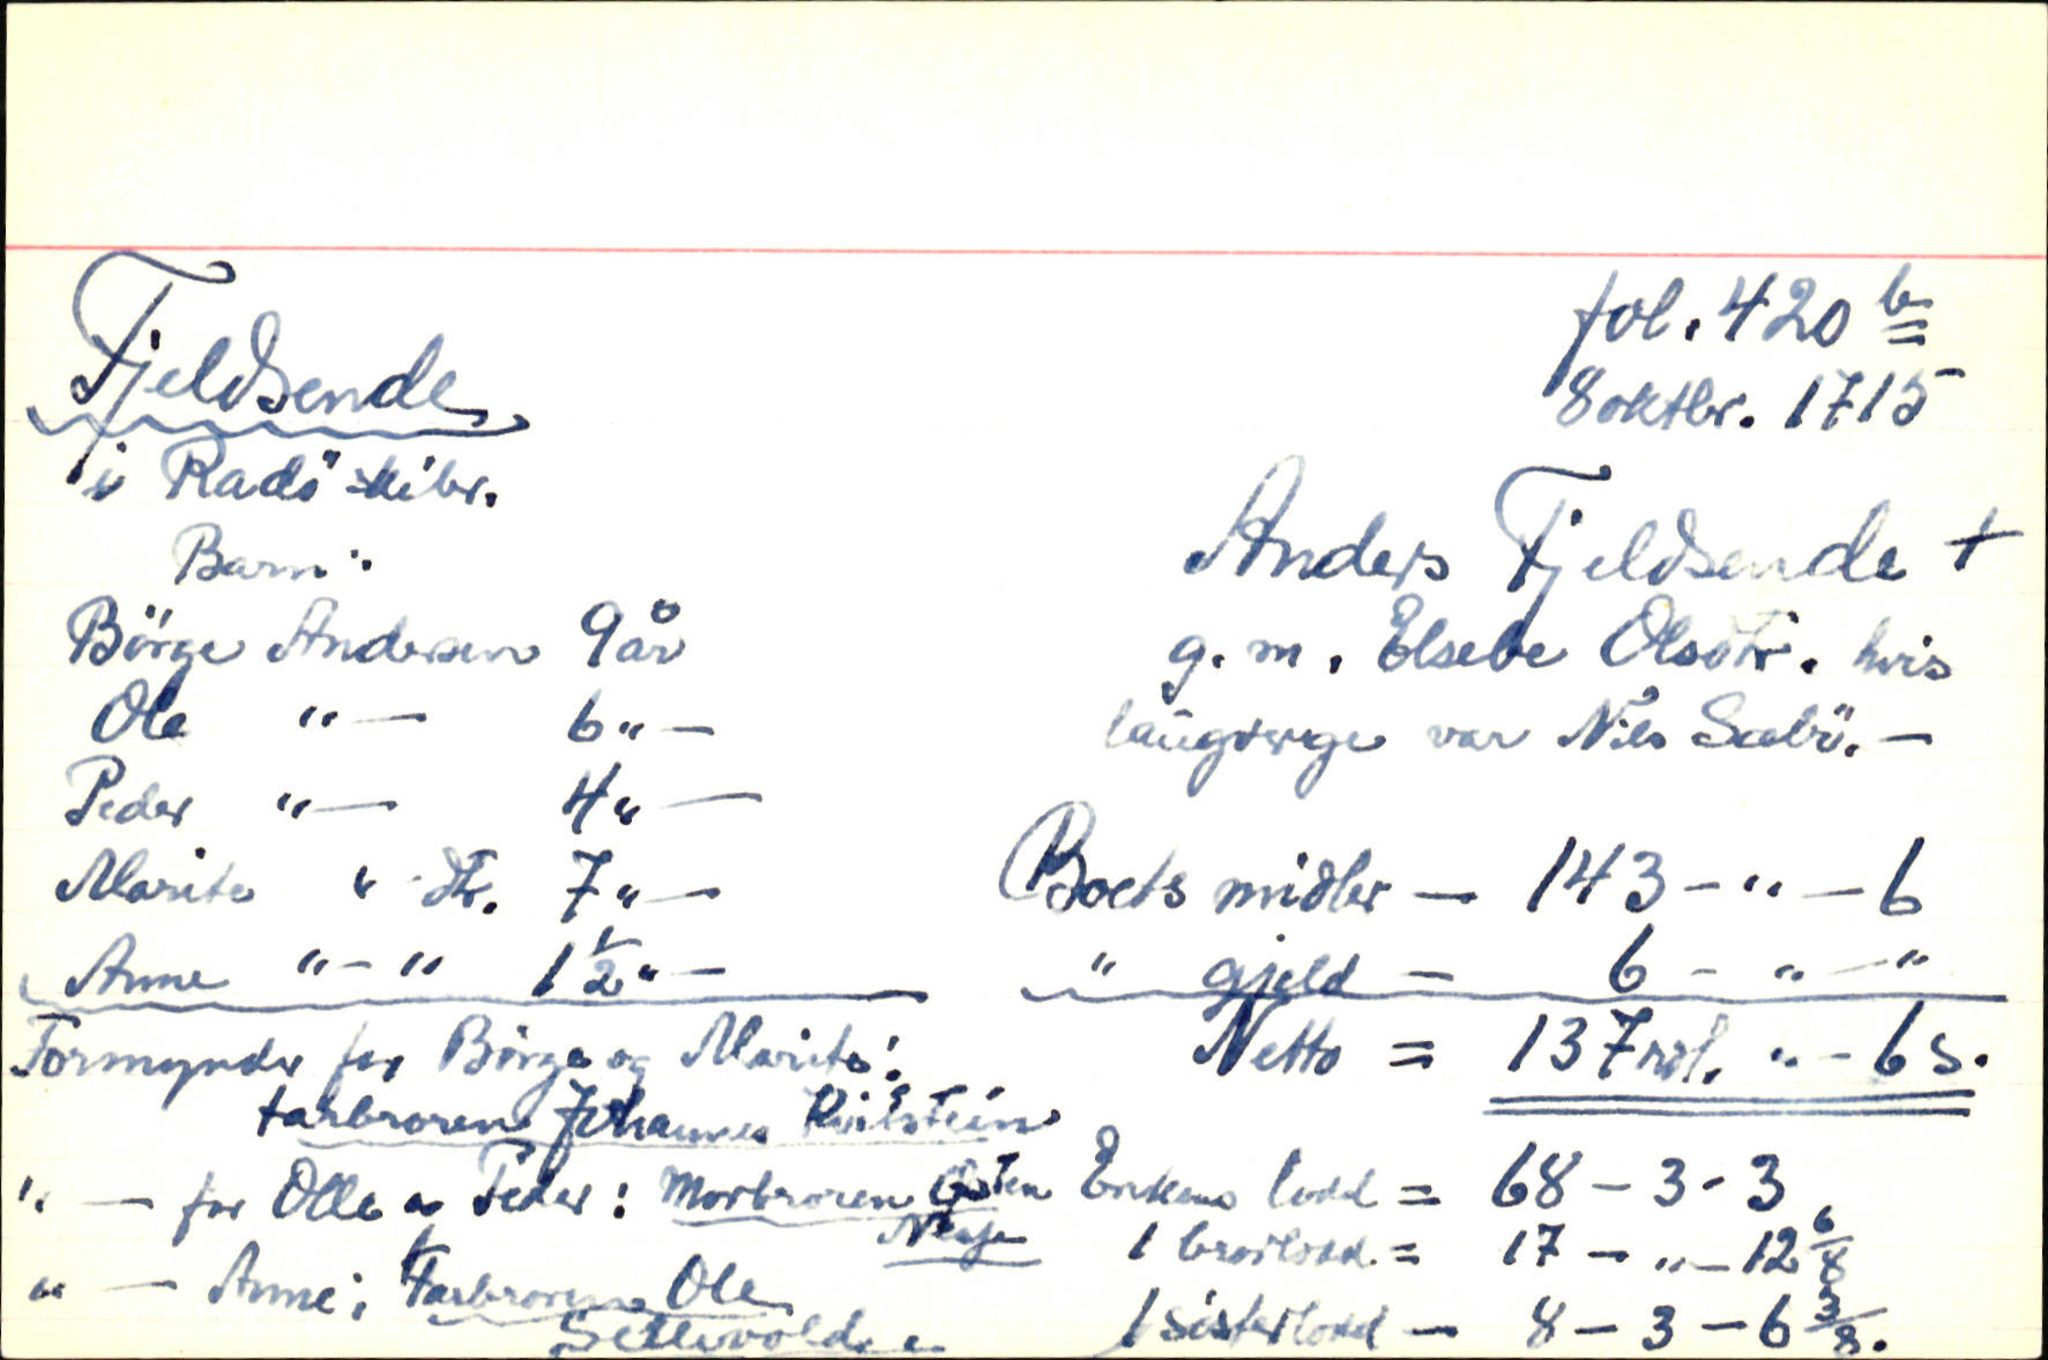 Fjeldsende
i Radö skibr.
Barn:
Börge Andersen 9 år
Ole "— 6 " —
Peder "— 4 " —
Marite " dtr. 7 " —
Anne " — " 1 1/2 " —
Formynder for Börge og Marite:
farbroren Johannes
" — for Olle og Peder: Morbroren
" — Anne: Farbroren Ole
fol. 420 b
8 oktbr. 1715
Anders Fjeldsende +
g. m. Elsebe Olsdtr. hvis
laugverge var Nils Sæbö. —
Boets midler — 143 - " - 6
" gjeld — 6 - " - "
Netto = 137 rdl. " - 6 s.
Enkens lodd = 68 - 3 - 3
1 brorlodd. = 17 - " - 12 6/8
1 sisterlodd — 8 - 3 - 6 3/8.